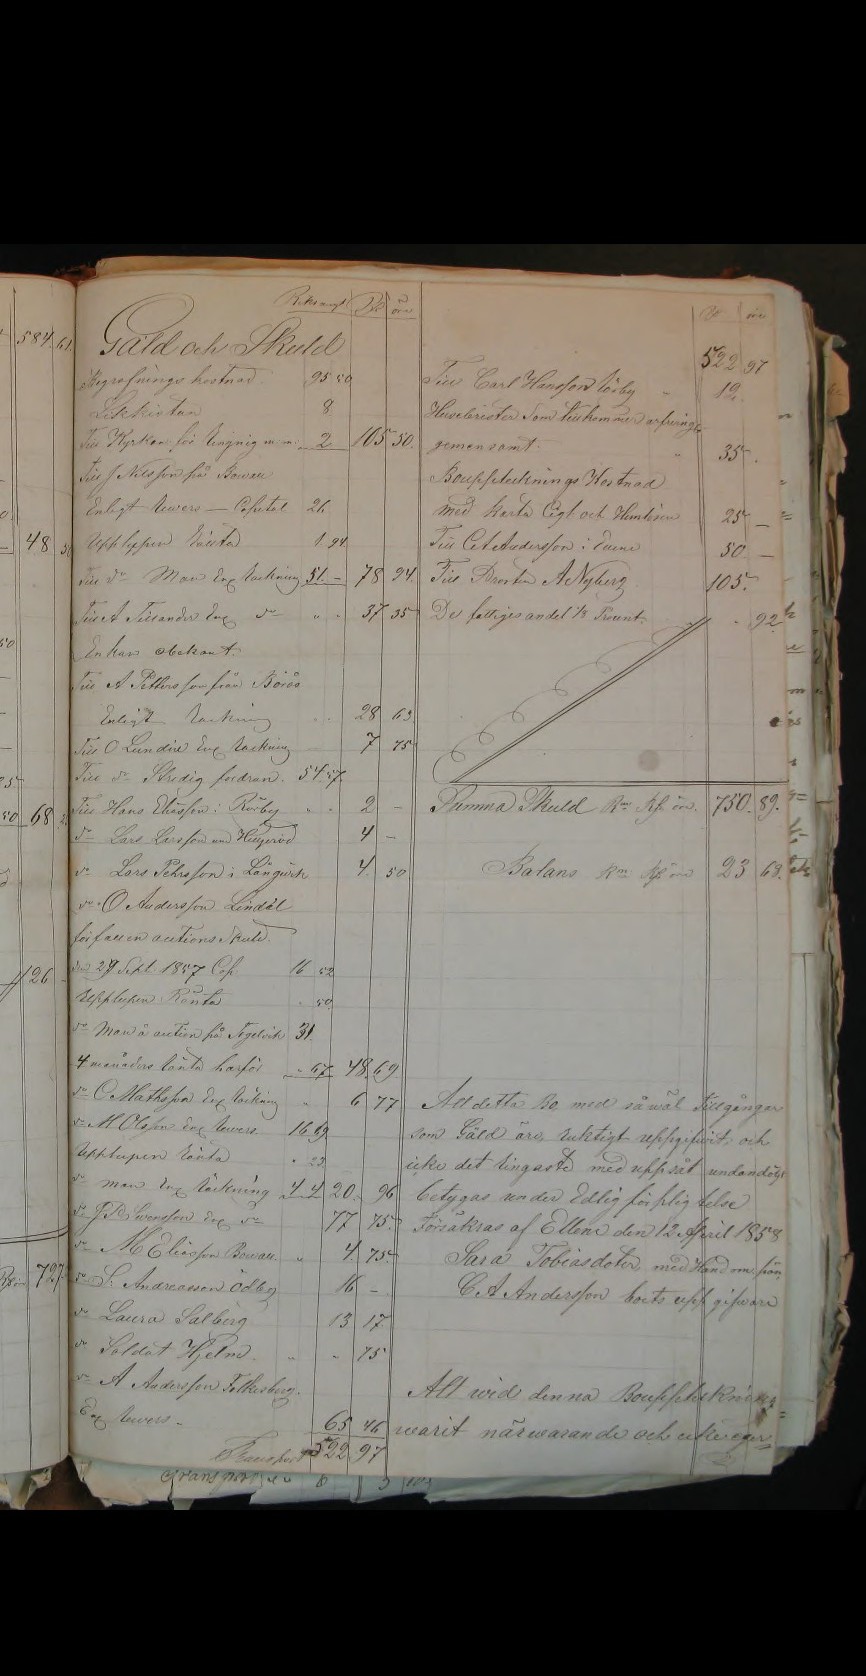 584 61.
48
68
126
727
Riksmynt Rd öre
Gäld och Skuld
Begrafnings kostnad 95 50
Likkistan 8
Till Kyrkan för Ringnig m:m: 2 105 50.
Till J Nilsson på Bowall
Enligt Rewers — Capital 26
Upplupen Ränta 1 94
Till do Man Enl Räckning 51 - 78 94.
Till A Tillander Enl do " " 37 35
Enkan obekant.
Till A Pettersson från Borås
Enligt Räckning 28 63
Till O Lundin Enl Räckning 7 75
Till do Stridig fordran. 54 57.
Till Hans Eliasson i Rörby 2 —
do Lars Larsson 4 —
do Lars Pehrsson i Långwik 4. 50
do O Andersson Lindål
förfallen auctions Skuld.
den 29 Sept. 1857 Cap. 16 52
Upplupen Ränta . 50.
do Man å auction på 31.
4 månaders Ränta härför . 67 48 69
do C Mathsson Enl Räckning " 6 77
do M Olsson Enl Rewers. 16 69
Upplupen Ränta . 23
do man Enl Räckning 4 4 20. 96
do J B Swensson Enl do 77 75
do M Eliasson Bowall " 4. 75
do S. Andreasson Ödby 16 -
do Laura Salberg 13 17
do Soldat Hjelm. " - 75
do A Andersson
Enl Rewers - 65 46
Transport 522 97
Rd öre
522 97
Till Carl Hansson Rörby " 12.
som tillkommer arfwinge
gemensamt. " 35 .
Bouppteknings Kostnad
med Karta Sigl och 25 —
Till C A Andersson i 50. —
Till A Nyberg 105.
De fattiges andel 1/8 Procent. . 92
Summa Skuld Rm Rd. öre 750. 89.
Balans Rm Rd öre 23 63.
All detta Bo med såwäl Tillgångar
som Gäld äro, Ricktigt uppgifwit och
icke det Ringaste med uppsåt undandölgt
betygas under Edlig förpligtelse
Försäkras af Ellene den 12 April 1858
Sara Tobiasdoter med Hand om pän
C A Andersson boets uppgifware
Att wid denna Bouppteknin
warit närwarande och